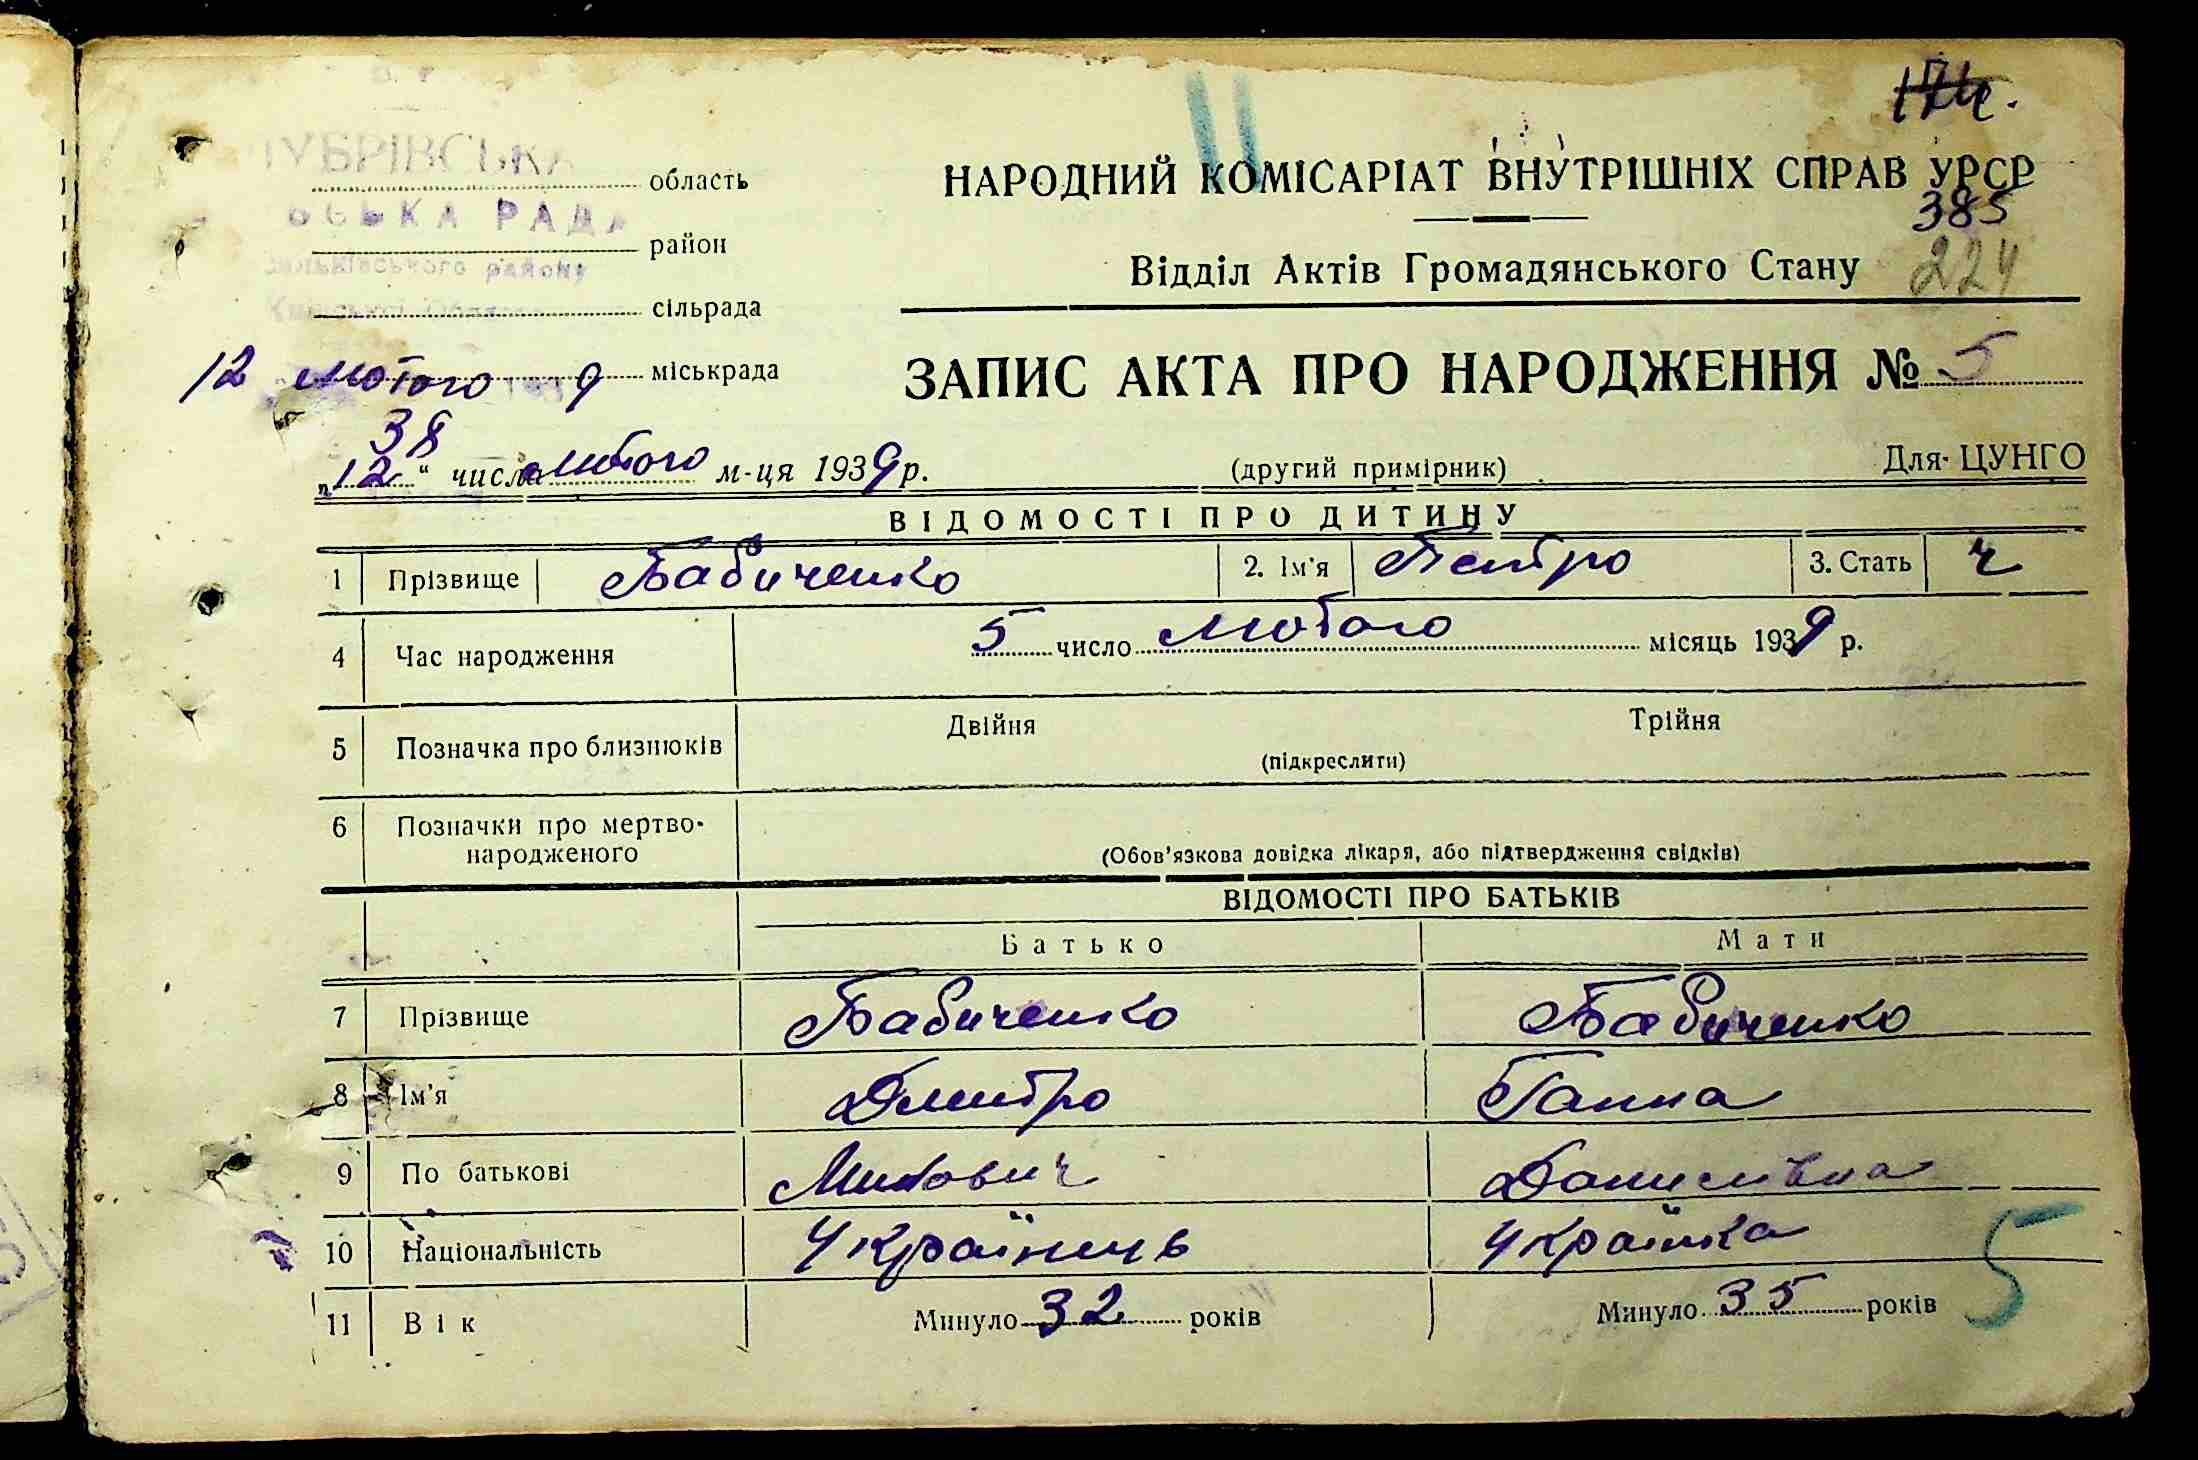 174.
УБРІВСЬКА
область
НАРОДНИЙ КОМІСАРІАТ ВНУТРІШНІХ СПРАВ УРСР
СЬКА РАДА
385
район
Відділ Актів Громадянського Стану
224
району
сільрада
12 лютого 9 міськрада
ЗАПИС АКТА ПРО НАРОДЖЕННЯ № 5
38
„12“ числа лютого м-ця 1939 р.
(другий примірник)
Для ЦУНГО
ВІДОМОСТІ ПРО ДИТИНУ
1 Прізвище Бабиченко 2. Ім'я Петро 3. Стать ч
4 Час народження 5 число лютого місяць 1939 р.
5 Позначка про близнюків Двійня Трійня
(підкреслити)
6 Позначки про мертво-
народженого (Обов'язкова довідка лікаря, або підтвердження свідків)
ВІДОМОСТІ ПРО БАТЬКІВ
Батько Мати
7 Прізвище Бабиченко Бабиченко
8 Ім'я Дмитро Ганна
9 По батькові Данилівна
10 Національність Українець Українка
11 Вік Минуло 32 років Минуло 35 років
5